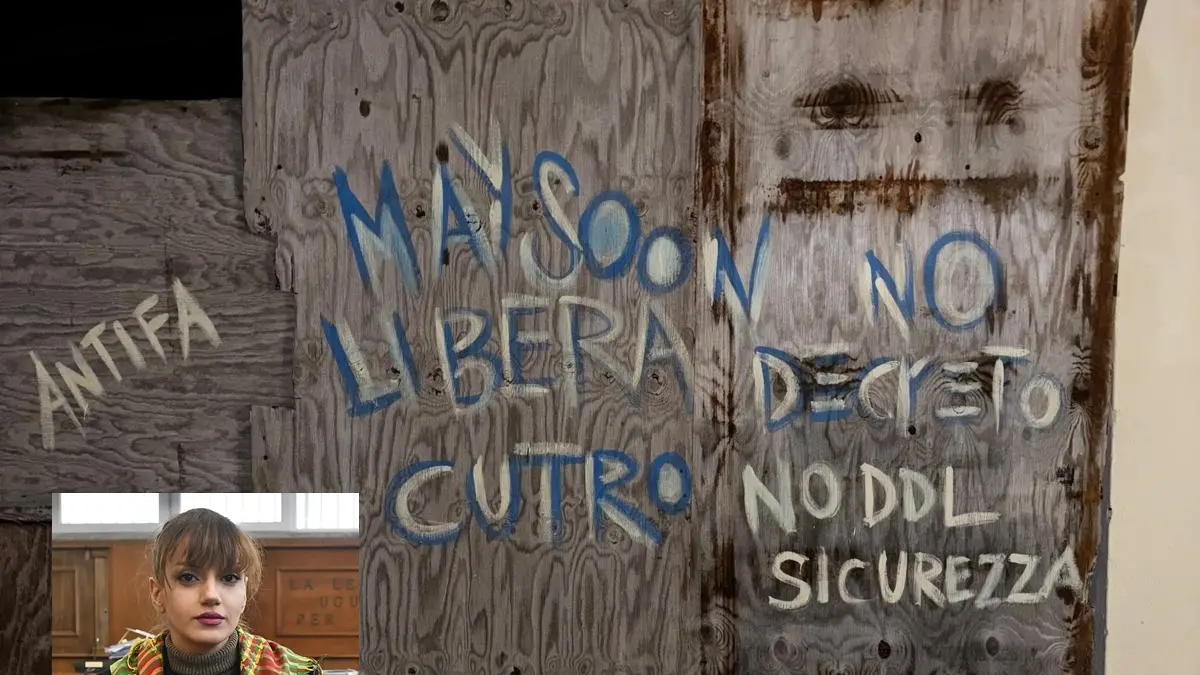 ANTIFA
MAYSOON
LIBERA
NO
DECRETO
CUTRO
NO DDL
SICUREZZA
LA LE
UGU
PER